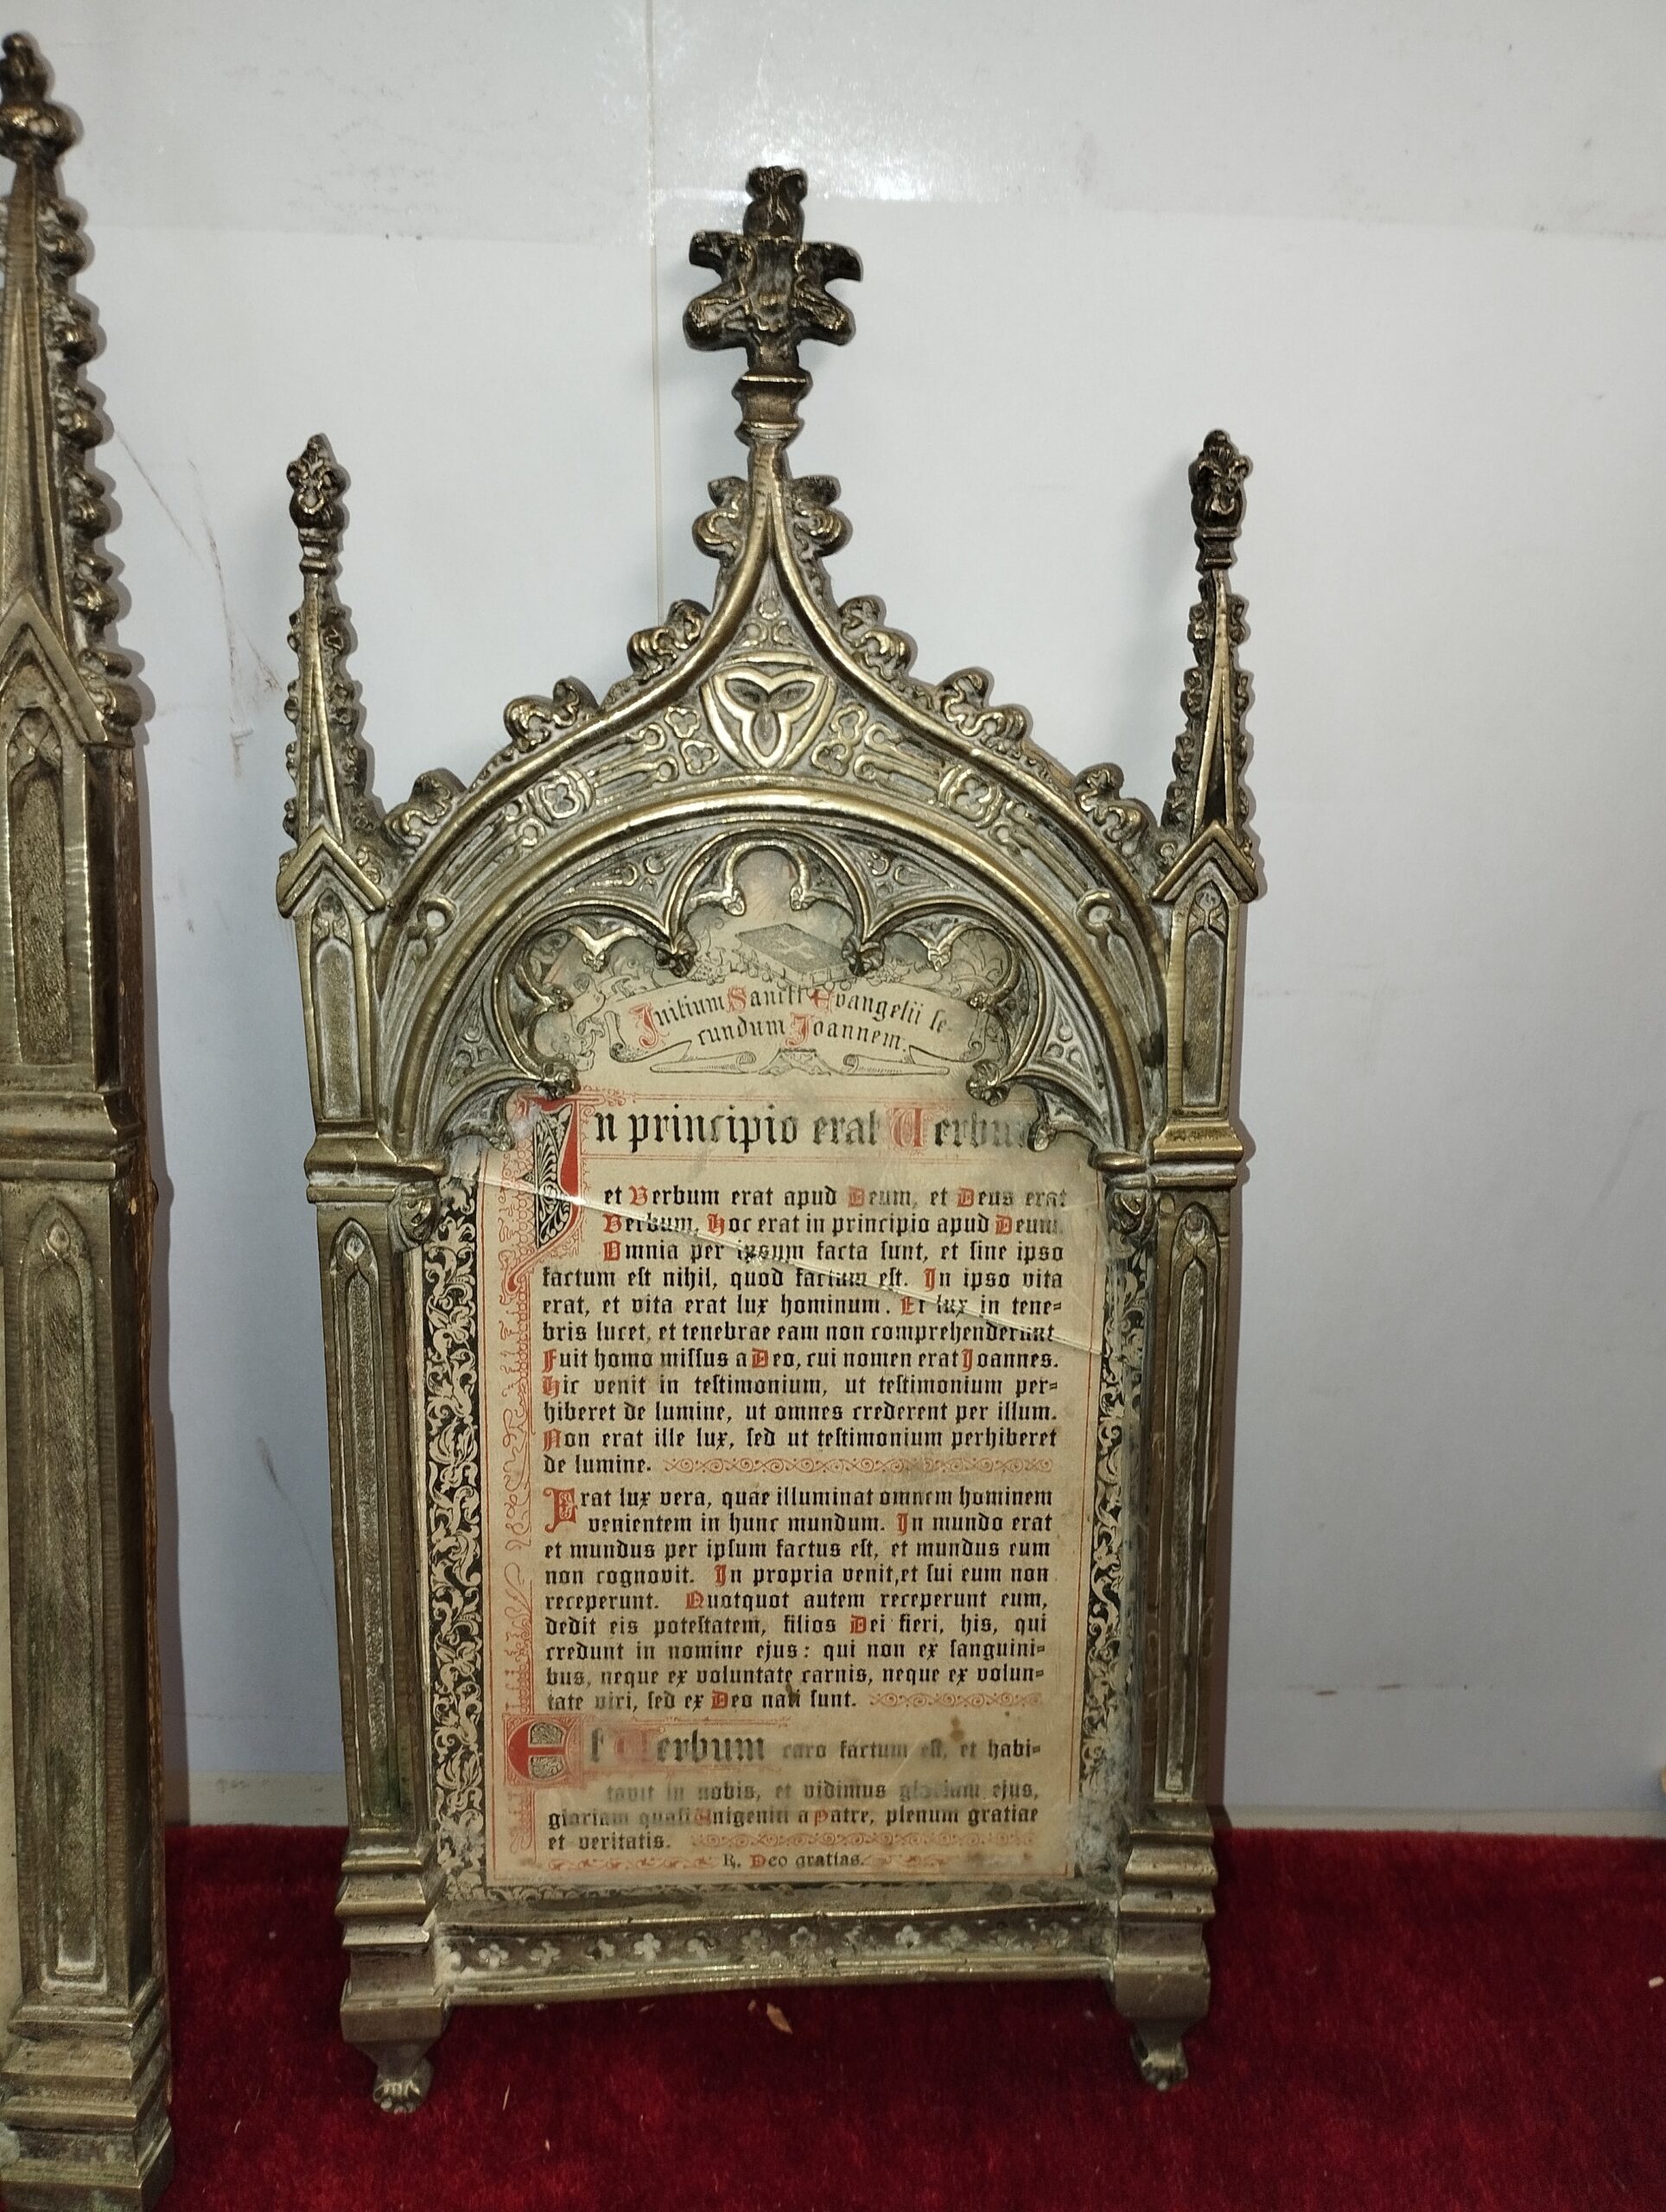 Initium Sancti Evangelii se-
cundum Joannem.
In principio erat Verbum
et Verbum erat apud Deum, et Deus erat
Verbum. Hoc erat in principio apud Deum.
Omnia per ipsum facta sunt, et sine ipso
factum est nihil, quod factum est. In ipso vita
erat, et vita erat lux hominum. Et lux in tene=
bris lucet, et tenebrae eam non comprehenderunt
Fuit homo missus a Deo, cui nomen erat Joannes.
Hic venit in testimonium, ut testimonium per=
hiberet de lumine, ut omnes crederent per illum.
Non erat ille lux, sed ut testimonium perhiberet
de lumine.
Erat lux vera, quae illuminat omnem hominem
venientem in hunc mundum. In mundo erat
et mundus per ipsum factus est, et mundus eum
non cognovit. In propria venit, et sui eum non
receperunt. Quotquot autem receperunt eum,
dedit eis potestatem, filios Dei fieri, his, qui
credunt in nomine ejus: qui non ex sanguini=
bus, neque ex voluntate carnis, neque ex volun=
tate viri, sed ex Deo nati sunt.
Et Verbum caro factum est, et habi=
tavit in nobis, et vidimus gloriam ejus,
gloriam quasi Unigeniti a patre, plenum gratiae
et veritatis.
R. Deo gratias.